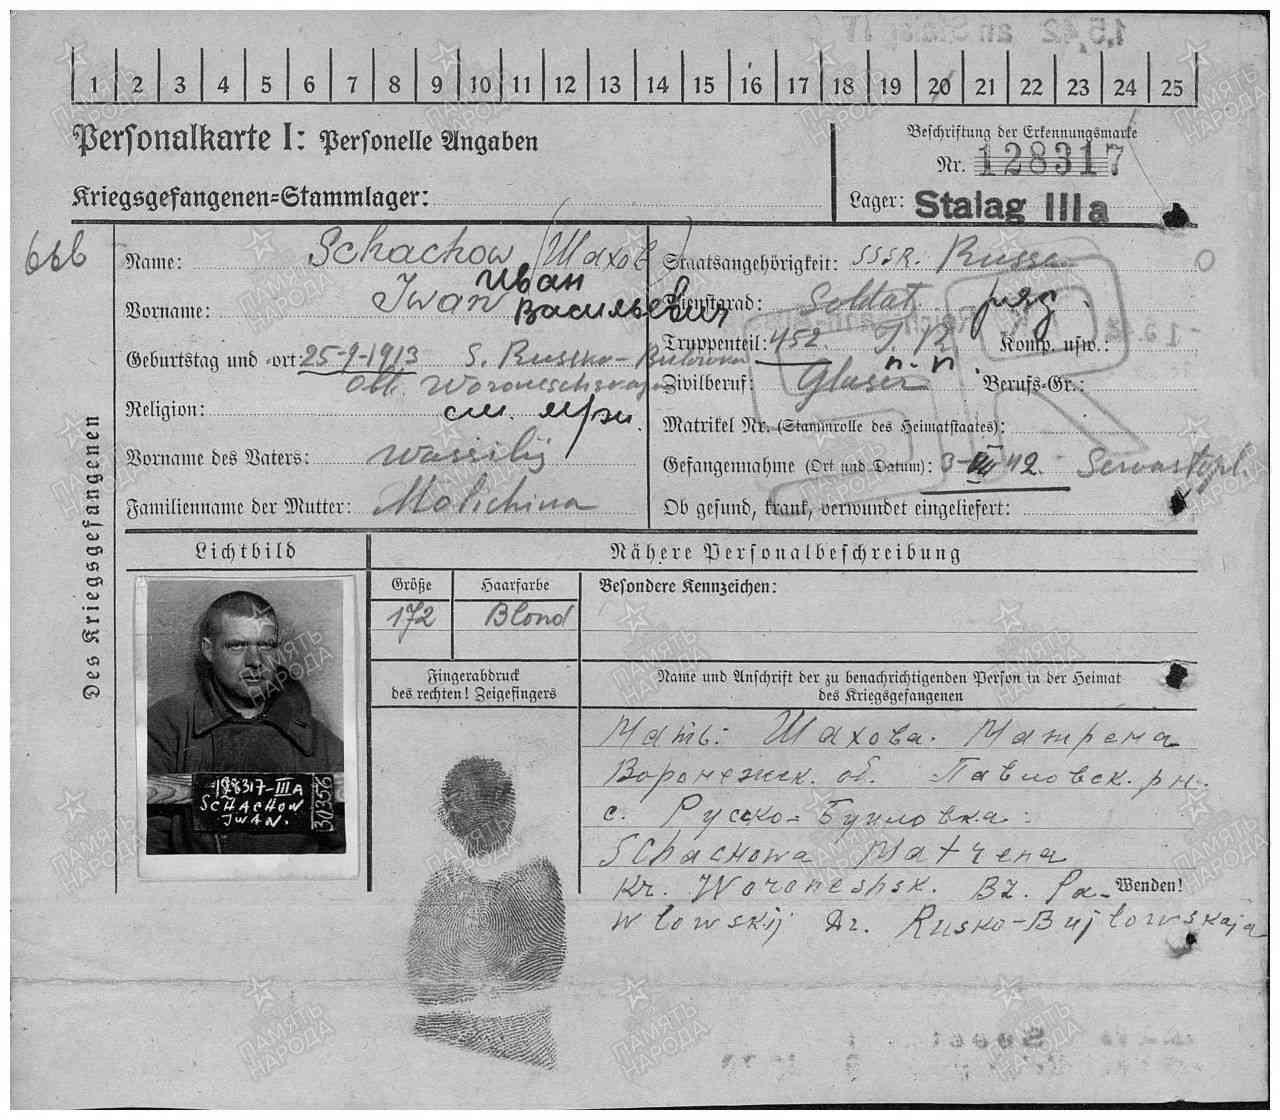 1 2 3 4 5 6 7 8 9 10 11 12 13 14 15 16 17 18 19 20 21 22 23 24 25
Personalkarte I: Personelle Angaben
Beschriftung der Erkennungsmarke
Nr. 128317
Kriegsgefangenen-Stammlager:
Lager: Stalag IIIa
Des Kriegsgefangenen
Name: Schachow (Шахов)
Vorname: Iwan Иван
Васильевич
Geburtstag und -ort: 25-9-1913 S. Russko-Bulowka
Obl. Woroneschskaja
Religion:
Vorname des Vaters: Wassilij
Familienname der Mutter: Molichina
Staatsangehörigkeit: SSSR. Russe
Dienstgrad: Soldat ряд.
Truppenteil: 452. J. R. Komp. usw.:
п. п.
Zivilberuf: Glaser Berufs-Gr.:
Matrikel Nr. (Stammrolle des Heimatstaates):
Gefangennahme (Ort und Datum): 3-VII-42. Sewastopl
Ob gesund, krank, verwundet eingeliefert:
Lichtbild
Nähere Personalbeschreibung
Größe Haarfarbe
172 Blond
Besondere Kennzeichen:
Fingerabdruck
des rechten! Zeigefingers
Name und Anschrift der zu benachrichtigenden Person in der Heimat
des Kriegsgefangenen
Мать: Шахова. Матрена
Воронежск. об. Павловск. рн.
с. Руско-Буйловка.
Schachowa Matrena
Kr. Woroneshsk. Bz. Pa-
Wenden!
wlowskij Ar. Rusko-Bujlowskaja
128317-IIIA
SCHACHOW
IWAN.
ПАМЯТЬ
НАРОДА